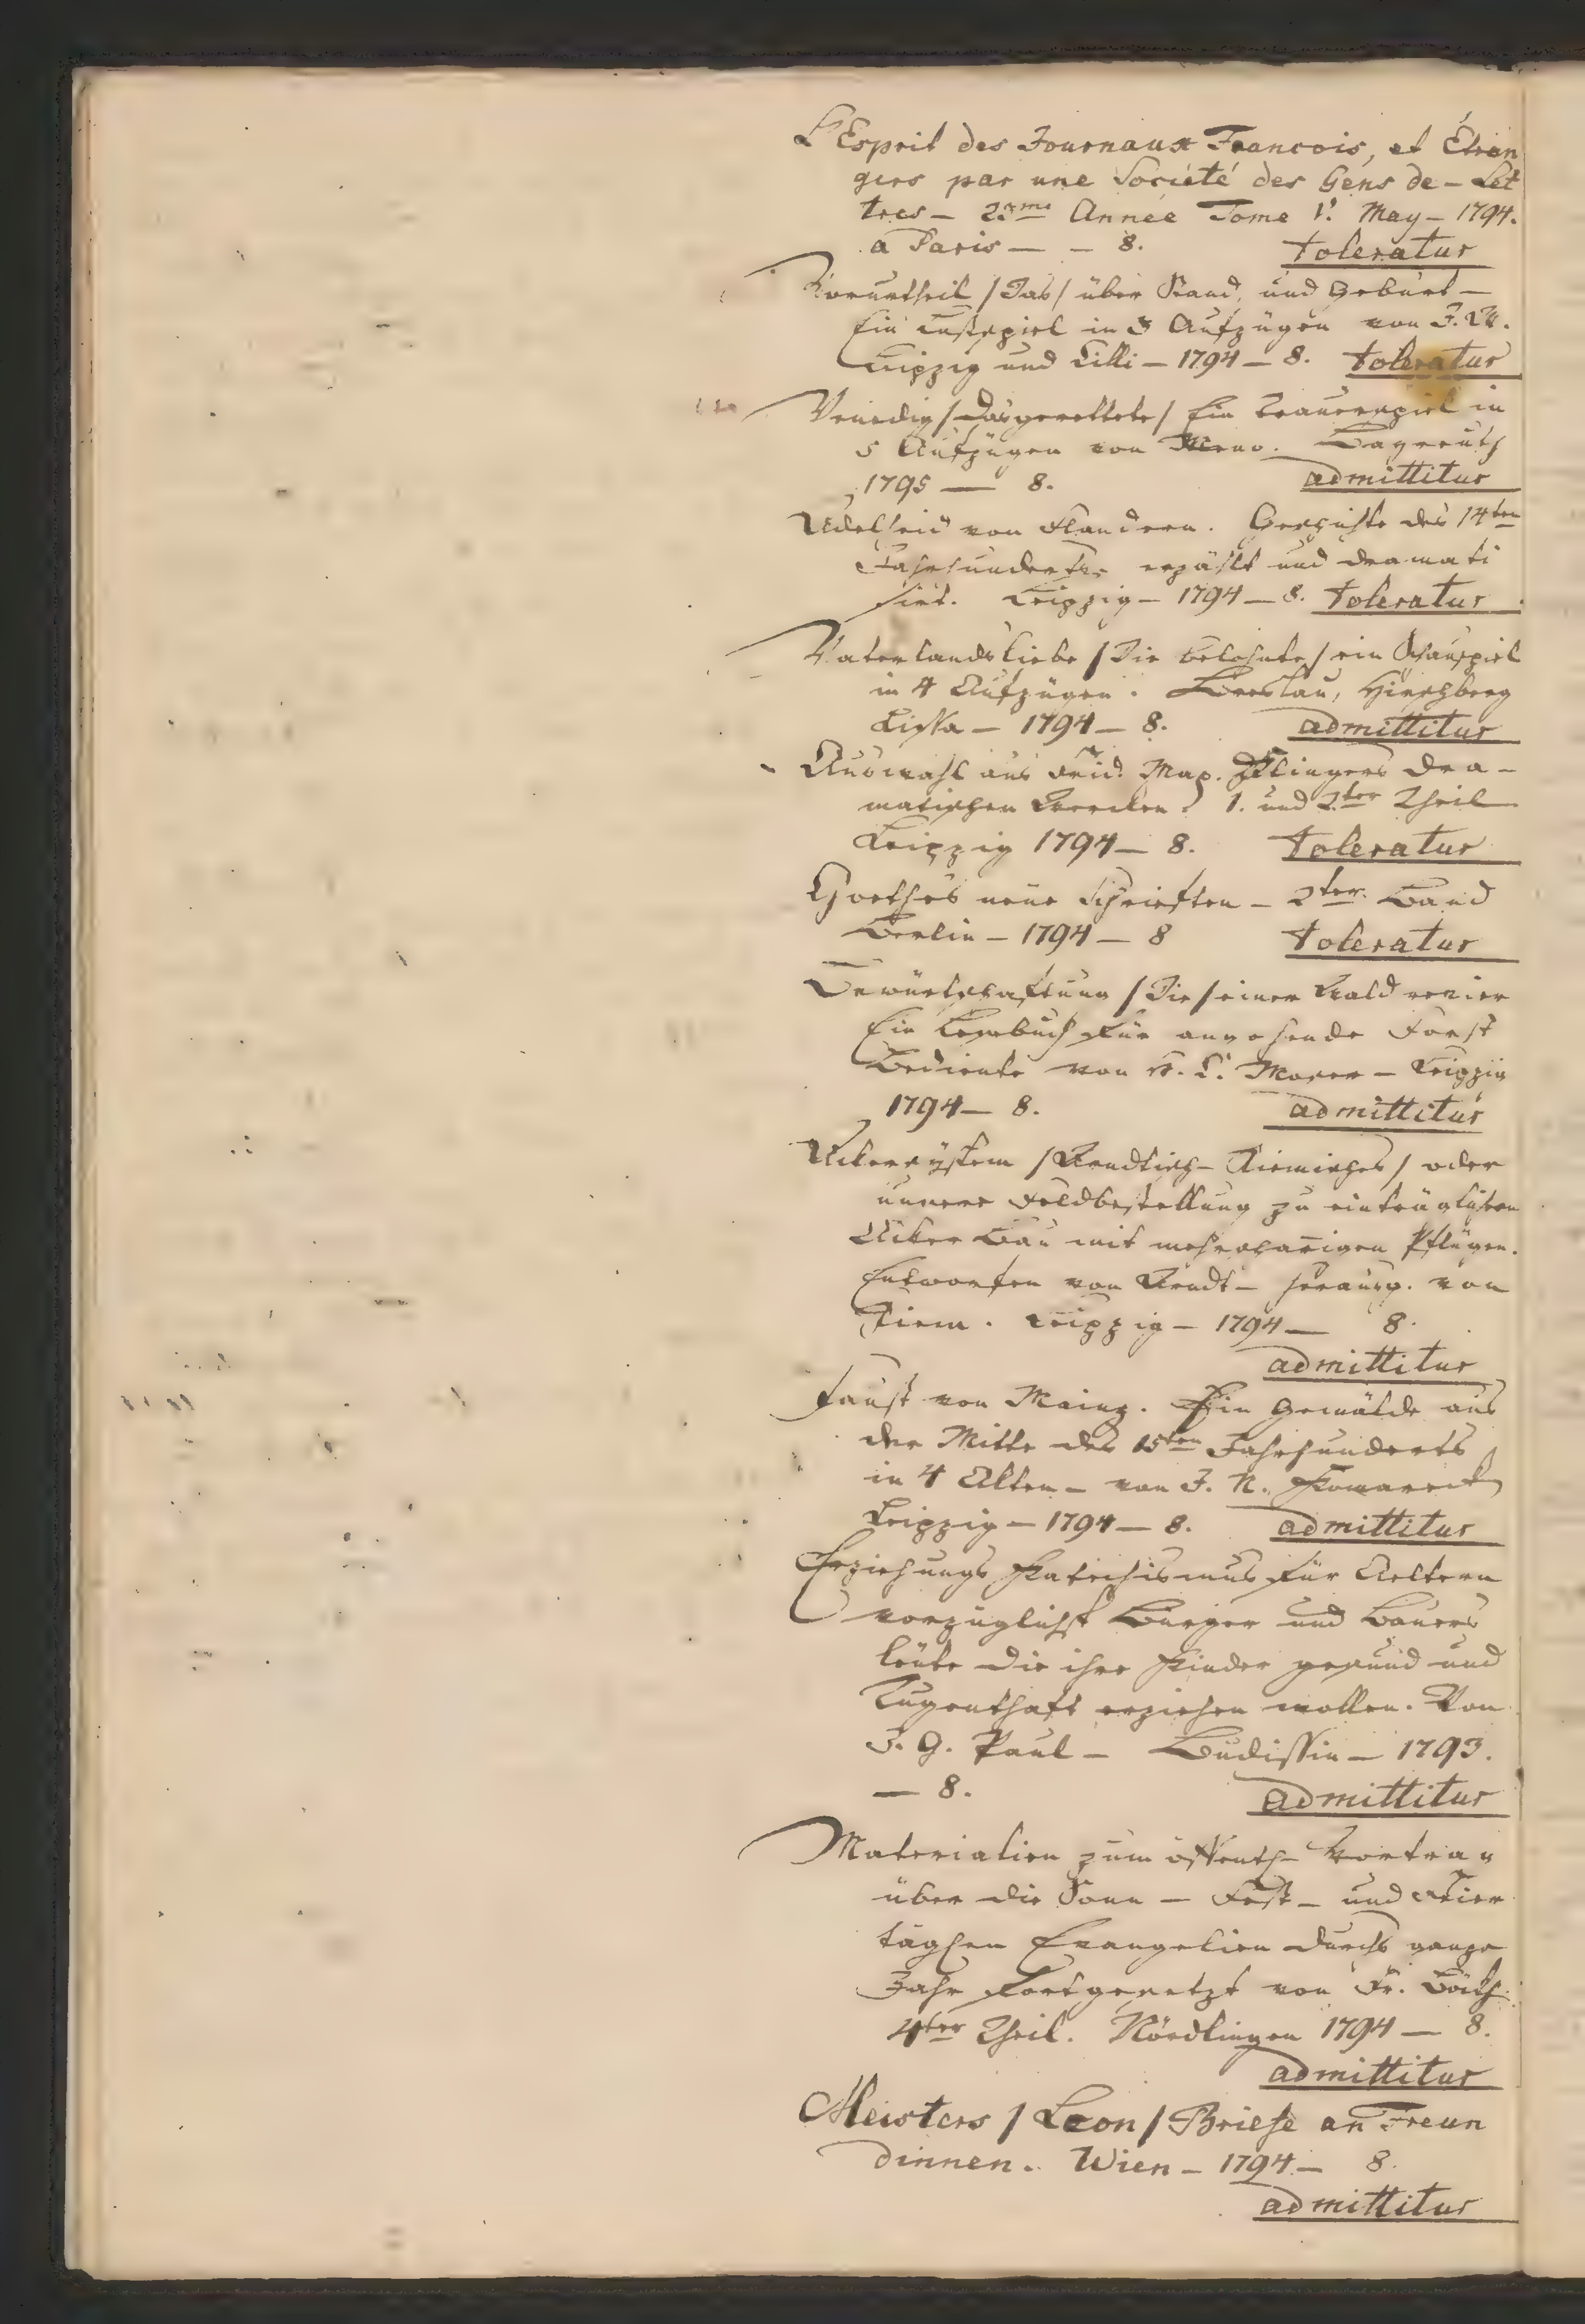 L'Esprit des Journaux Francois, et Étran
gers par une Societé des Gens de - Let
tres - 23me Année Tome 1r. May - 1794.
a Paris — - 8. toleratur
Vorurtheil /Das/ über Stand, und Geburt -
Ein Lustspiel in 3 Aufzügen von J. W.
Leipzig und Cilli - 1794 - 8. toleratur
Venedig /Das gerettete/ Ein Trauerspiel in
5 Aufzügen von Bayreuth
1795 — 8. admittitur
Adelheid von Flandern. Geschichte des 14ten
Jahrhunderts erzählt und dramati
sirt. Leipzig - 1794 - 8. toleratur
Vaterlandsliebe /Die belohnte/ ein Schauspiel
in 4 Aufzügen. Breslau, Hirschberg
Lissa - 1794 - 8. admittitur
Auswahl aus Frid. Max. Klingers dra-
matischen Wercken. 1. und 2ter Theil
Leipzig 1794 - 8. toleratur
Goethes neüe Schrieften - 2ter Band
Berlin - 1794 - 8 toleratur
Bewürthschaftung /Die/ einer Waldrevier
Ein Lesebuch für angehende Forst
Bediente von H. C. Moser - Leipzig
1794 - 8. admittitur
Ackersystem /Arndtisch- Riemisches/ oder
unsere Feldbestellung zu einträglichern
Acker Bau mit mehrscharigen Pflügen.
Entworfen von Arndt - herausg. von
Riem. Leipzig - 1794 — 8.
admittitur
Faust von Mainz. Ein Gemälde aus
der Mitte des 15ten Jahrhunderts
in 4 Akten - von J. N. Komareck
Leipzig - 1794 - 8. admittitur
Erziehungs Katechismus für Aeltern
vorzüglichst Bürger und Bauers
leüte die ihre Kinder gesund und
Tugenthaft erziehen wollen. Von
J. G. Paul - Budissin - 1793.
— 8. admittitur
Materialien zum öffentl- Vortrag
über die Sonn - Fest - und Feier
täglichen Evangelien durchs ganze
Jahr fortgesetzt von Fr.
4ter Theil. Nördlingen 1794 — 8.
admittitur
Meisters /Leon/ Briefe an Freun
dinnen. Wien - 1794 - 8.
admittitur